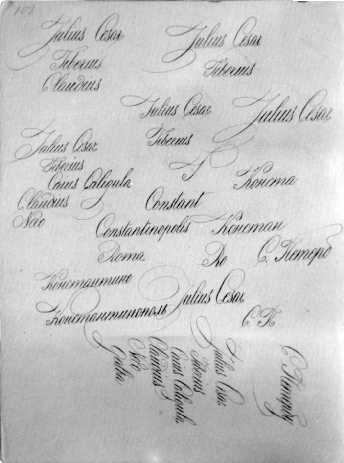 103
Julius Cesar
Tiberius
Claudius
Julius Cesar
Tiberius
Julius Cesar
Tiberius
Julius Cesar
Julius Cesar
Tiberius
Caius Caligula
Claudius
Nero
Конста
Constant
Constantinopolis
Констан
Roma
Ro
С. Петерб
Константино
Константинополь
Julius Cesar
С П
Julius Cesar
Tiberius
Caius Caligula
Claudius
Nero
Galba
С. Петербу